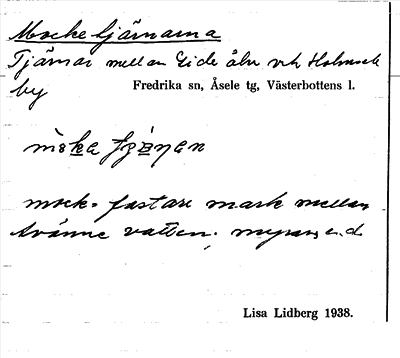 Mocketjärnarna
Tjärnar mellan Eide älv och Holmsele
by
Fredrika sn, Åsele tg, Västerbottens l.
mock = fastare mark mellan
tvänne vatten;
Lisa Lidberg 1938.